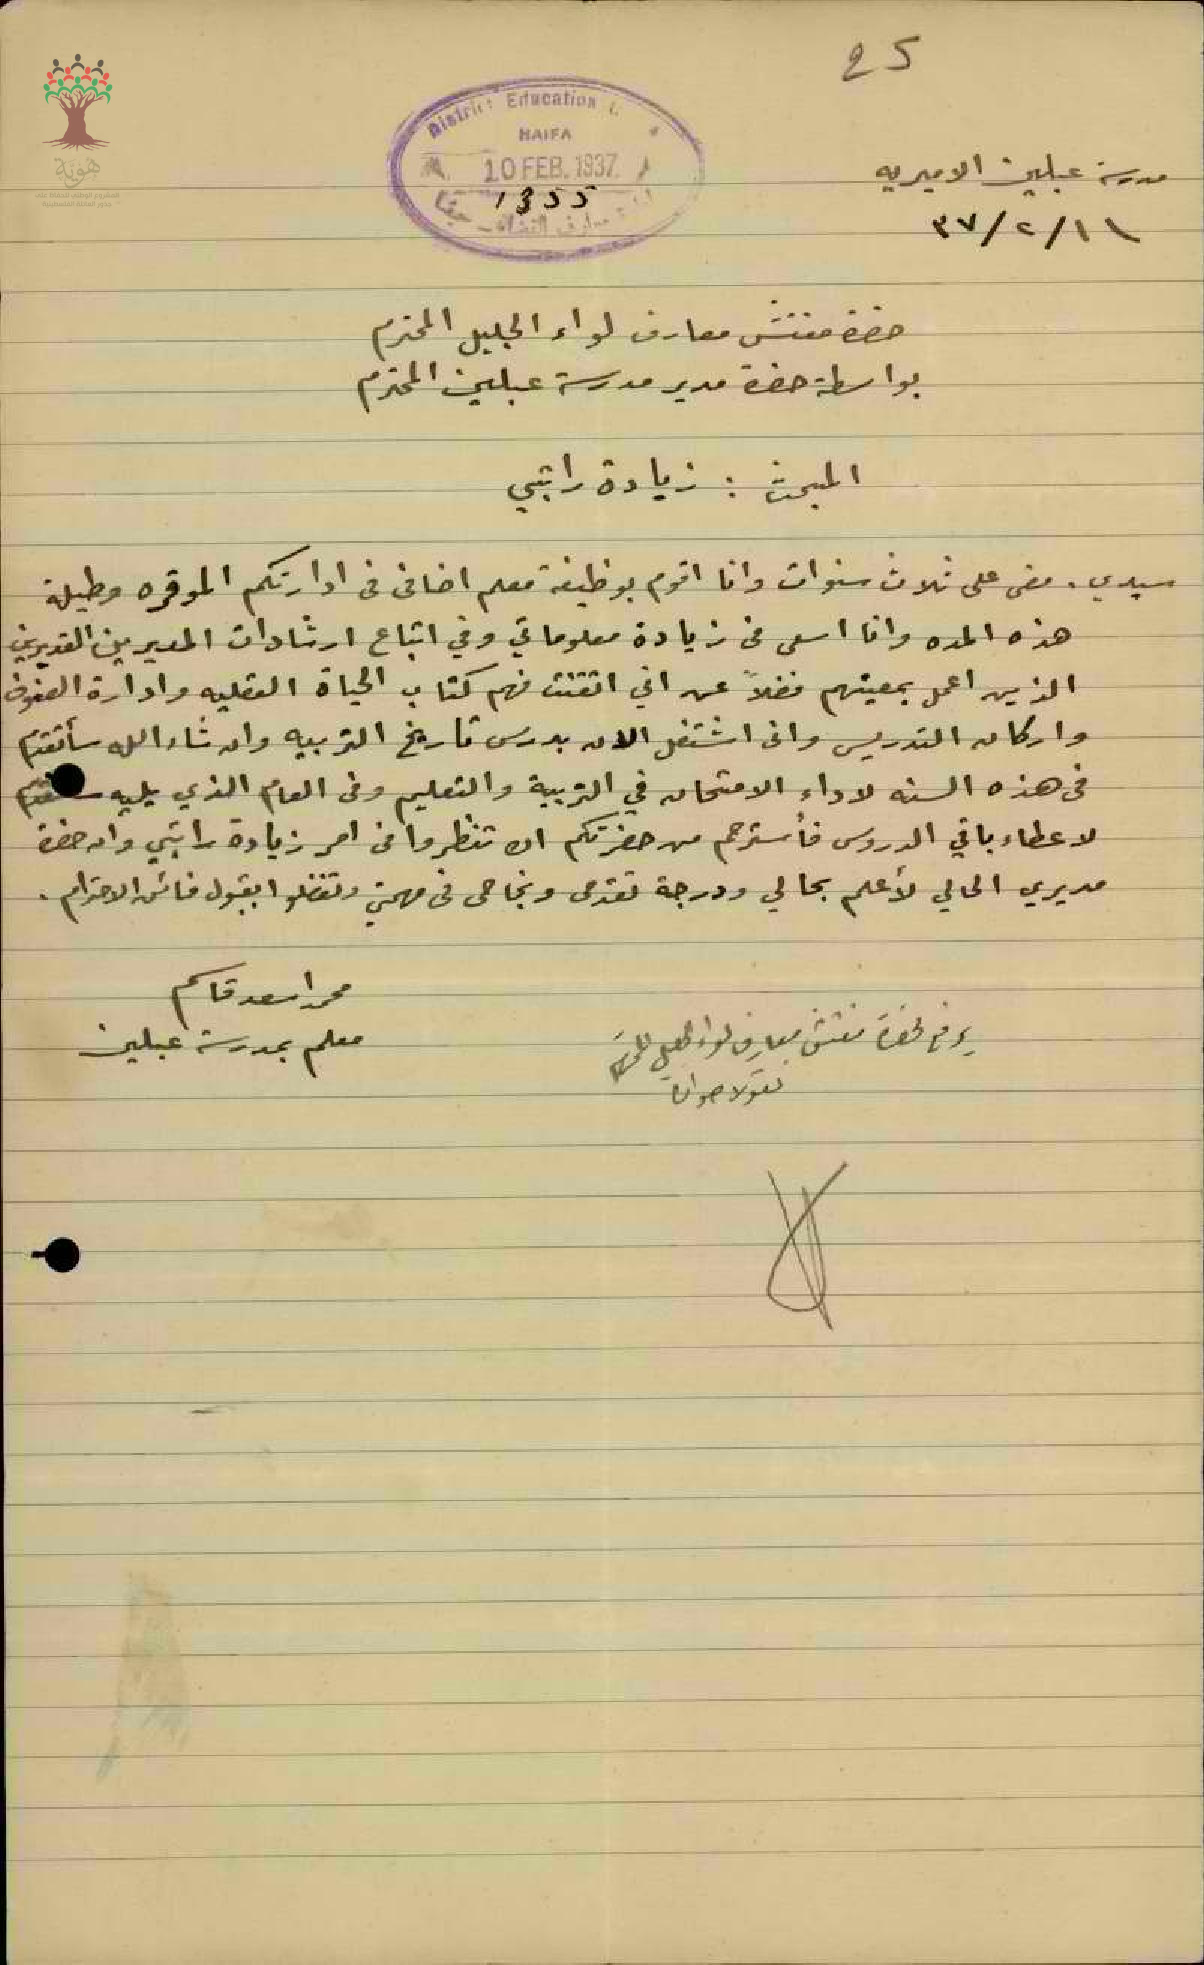 25
District Education
HAIFA
10 FEB. 1937
1355
معارف القضاء حيفا
هوية
مدرسة عبلين الاميريه
٣٧/٢/١١
حضرة مفتش معارف لواء الجليل المحترم
بواسطة حضرة مدير مدرسة عبلين المحترم
المبحث : زيادة راتبي
سيدي . مضى على ثلاث سنوات وانا اقوم بوظيفة معلم اضافى فى ادارتكم الموقره وطيلة
هذه المده وانا اسعى فى زيادة معلوماتي وفي اتباع ارشادات المديرين القديرين
الذين اعمل بمعيتهم فضلاً عن اني اتقنت فهم كتاب الحياة العقليه وادارة الصفوف
واركان التدريس وانى اشتغل الان بدرس تاريخ التربيه وان شاء الله سأتقدم
فى هذه السنه لاداء الامتحان في التربية والتعليم وفى العام الذي يليه سأتقدم
لاعطاء باقي الدروس فأسترحم من حضرتكم ان تنظروا فى امر زيادة راتبي وان حضرة
مديري الحالي لأعلم بحالي ودرجة تقدمى ونجاحى فى مهمتي وتفضلوا بقبول فائق الاحترام .
محمد اسعد قاسم
معلم بمدرسة عبلين
يرفع لحضرة مفتش معارف لواء الجليل المحترم
نقولا